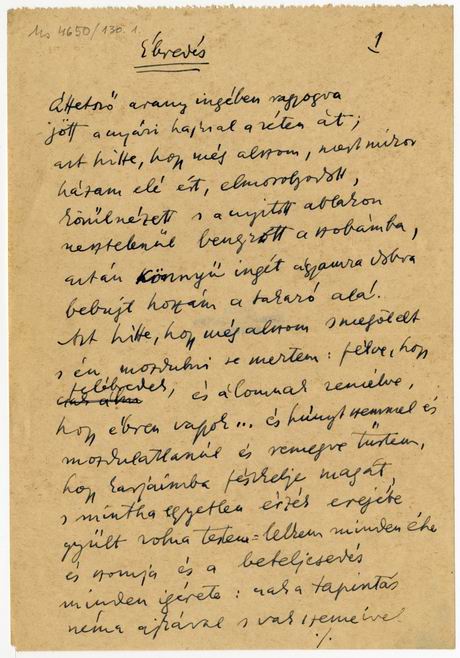 Ms 4650/130. 1.
1
Ébredés
Áttetsző arany ingében ragyogva
jött a nyári hajnal a réten át;
azt hitte, hogy még alszom, mert mikor
házam elé ért, elmosolyodott,
körülnézett s a nyitott ablakon
nesztelenül beugrott a szobámba,
aztán könnyű ingét ágyamra dobva
bebujt hozzám a takaró alá.
Azt hitte, hogy még alszom s megölelt
s én mozdulni se mertem: félve, hogy
felébredek, és álomnak remélve,
hogy ébren vagyok... és húnyt szemmel és
mozdulatlanúl és remegve tűrtem,
hogy karjaimba fészkelje magát,
s mintha egyetlen érzék erejébe
gyűlt volna testem-lelkem minden éhe
és szomja és a beteljesedés
minden igérete: csak a tapintás
néma ajkával s vak szemeivel
./.